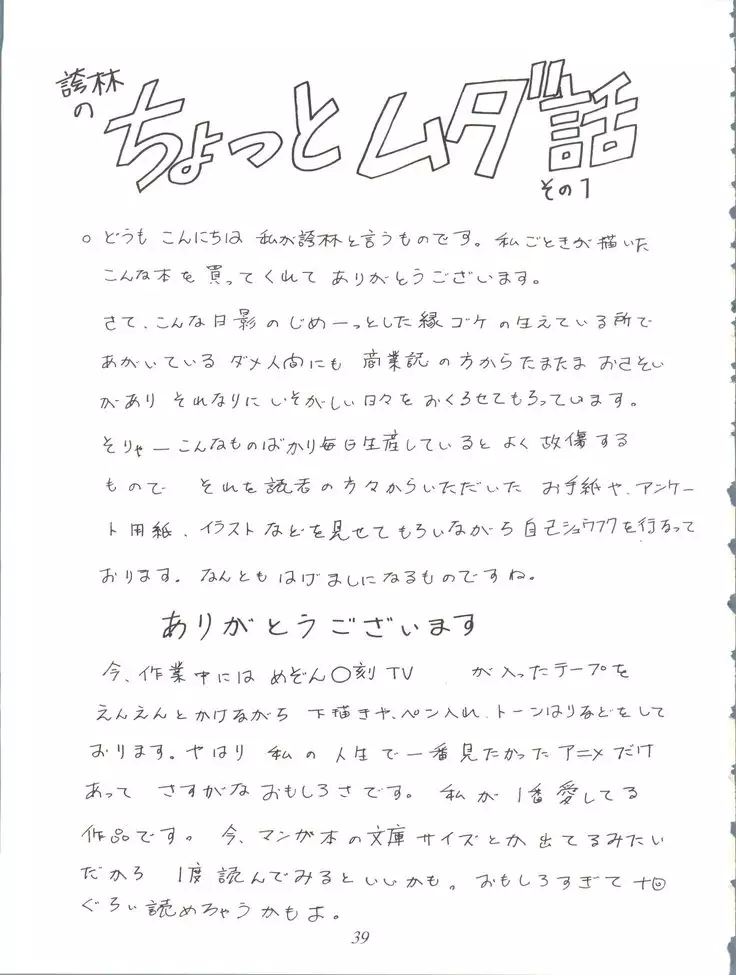 誇林
の
ちょっとムダ話
その1
○ どうも こんにちは 私が誇林と言うものです。私ごときが描いた
こんな本を買ってくれて ありがとうございます。
さて、こんな日影のじめーっとした縁ゴケの生えている所で
あがいている ダメ人間にも 商業誌の方からたまたま おさそい
があり それなりに いそがしい日々を おくらせてもらっています。
そりゃーこんなものばかり毎日生産していると よく故傷する
もので それを読者の方々からいただいた お手紙や、アンケー
ト用紙、イラストなどを見せてもらいながら 自己シュウフクを行なって
おります。なんとも はげましになるものですね。
ありがとうございます
今、作業中には めぞん〇刻TV が入ったテープを
えんえんとかけながら 下描きや、ペン入れ、トーンはりなどをして
おります。やはり 私の人生で一番見たかったアニメだけ
あって さすがなおもしろさです。私が1番愛してる
作品です。今、マンガ本の文庫サイズとか出てるみたい
だから 1度読んでみるといいかも。おもしろすぎて十回
ぐらい読めちゃうかもよ。
39